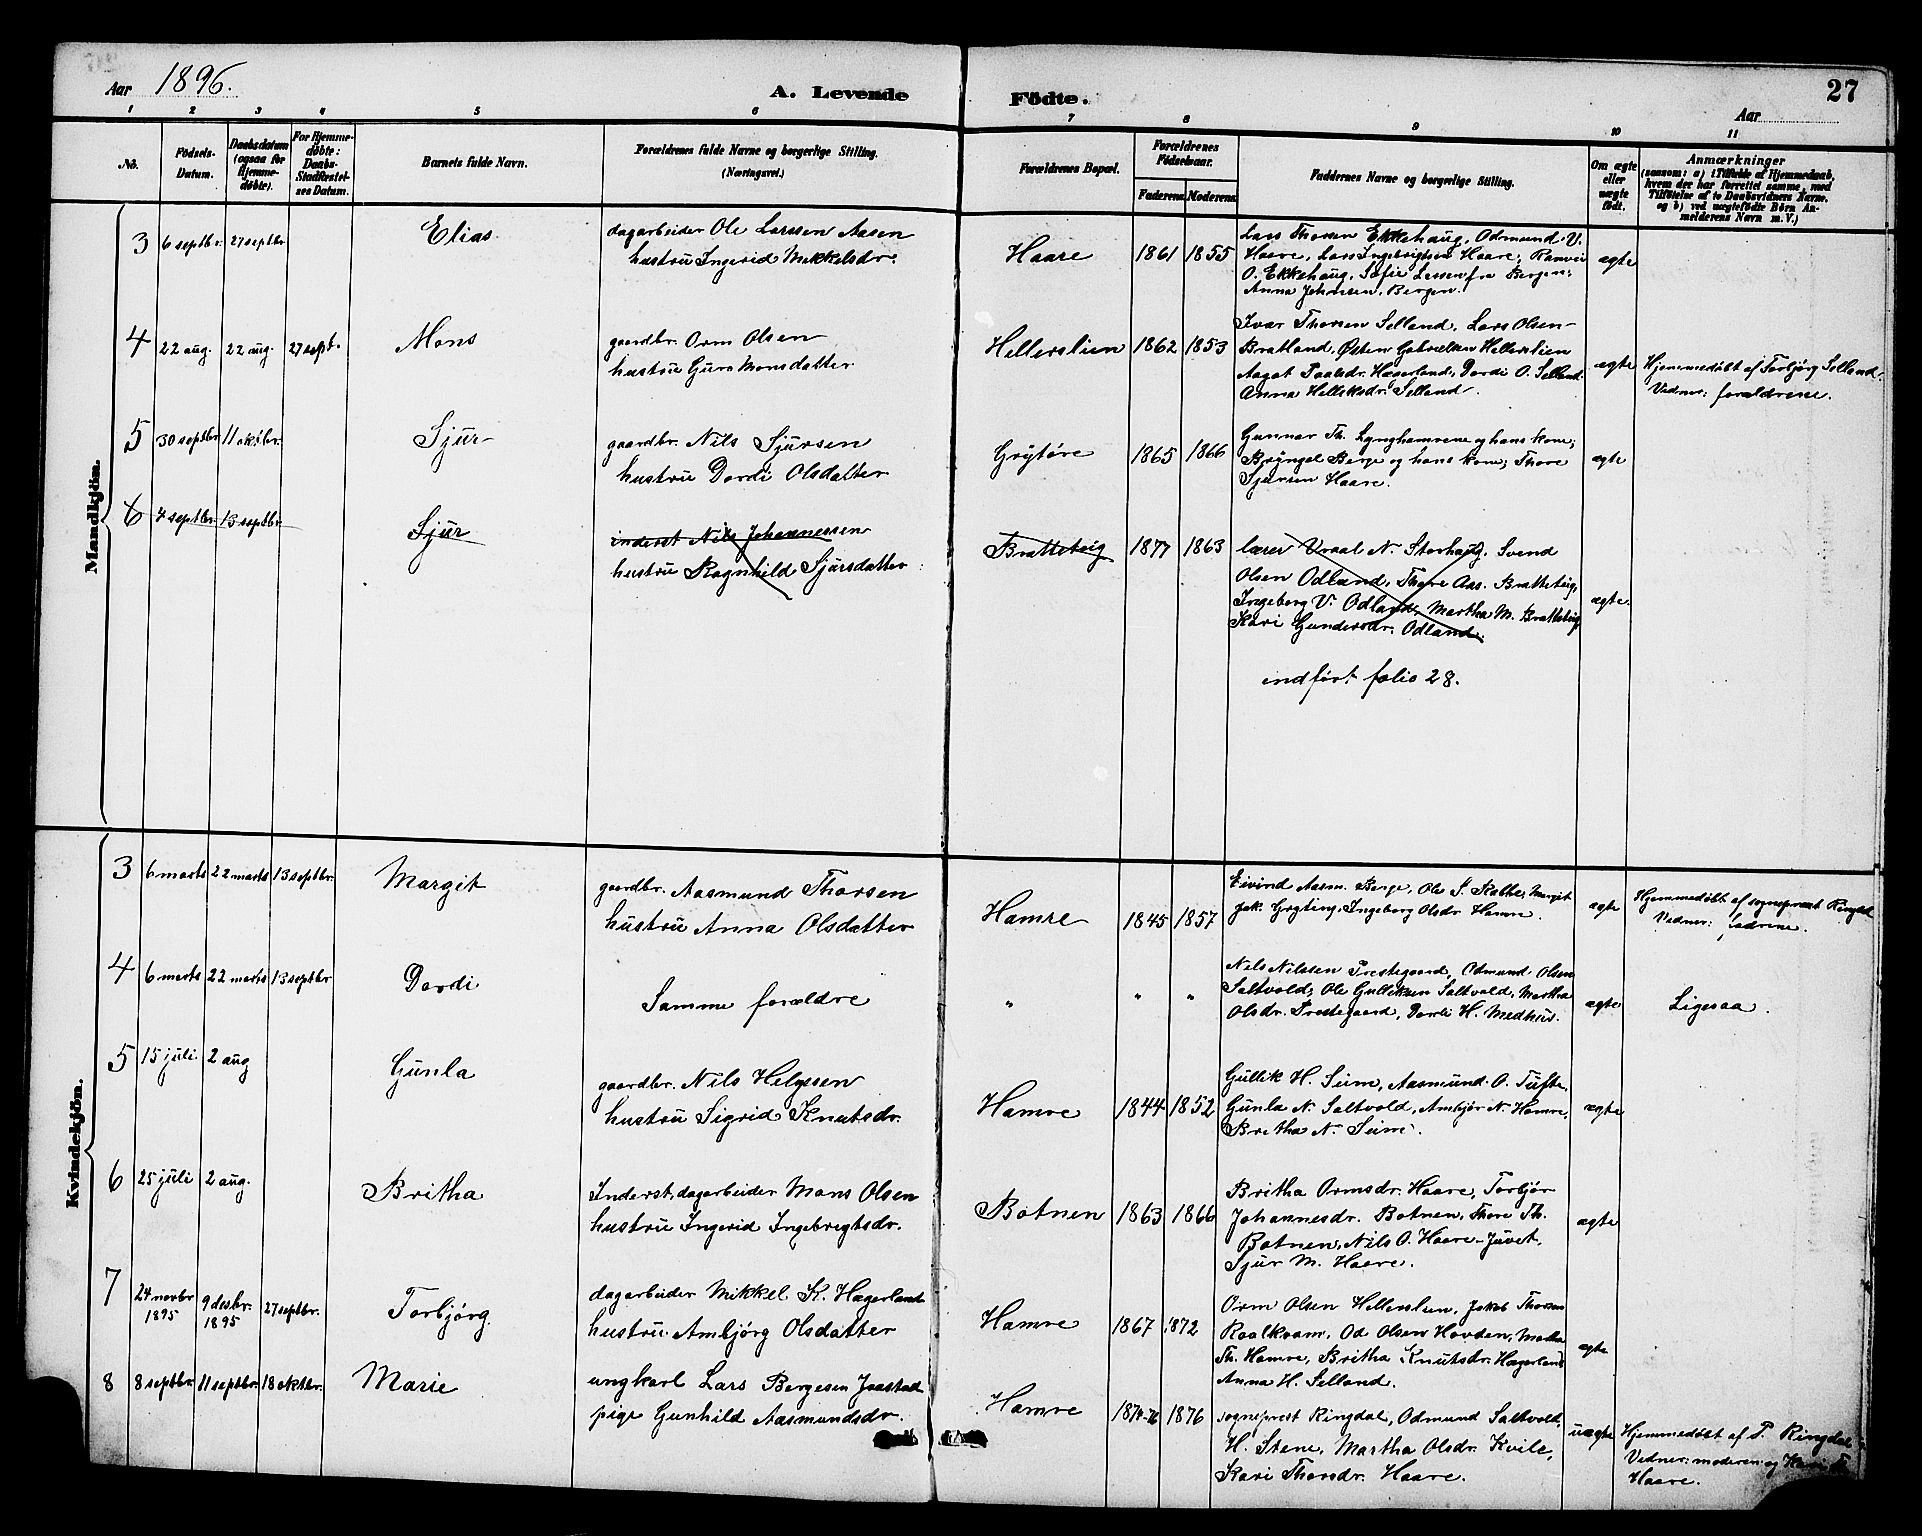 Aar 1896.
A. Levende Födte.
Aar
27
1 2 3 4 5 6 7 8 9 10 11
No.
Födsels-Datum.
Daabsdatum (ogsaa for Hjemme-döbte).
For Hjemme-döbte: Daabs-Stadfæstel-ses Datum.
Barnets fulde Navn.
Forældrenes fulde Navne og borgerlige Stilling.
(Næringsvei.)
Forældrenes Bopæl.
Forældrenes Födselsaar.
Faderens Moderens
Faddernes Navne og borgerlige Stilling.
Om ægte eller uægte födt.
Anmærkninger
(saasom: a) i Tilfælde af Hjemmedaab,
hvem der har forrettet samme, med
Tilföielse af to Daabsvidners Navne.
og b) ved uægtefödte Börn An-
melderens Navn m. V.)
Mandkjön.
3 6 septbr. 27 septbr Elias
dagarbeider Ole Larssen Aasen
hustru Ingerid Mikkelsdr.
Haare 1861 1855
Lars Thorsen Ekkehaug, Odmund V.
Haare, Lars Ingebrigtsen Haare, Ranvei
O. Ekkehaug, Sofie Larsen fra Bergen,
Anna Johnsen, Bergen.
ægte
4 22 aug. 22 aug. 27 sept. Mons
gaardbr. Orm Olsen
hustru Guro Monsdatter
Hellerslien 1862 1853
Ivar Thorsen Selland, Lars Olsen
Bratland, Østen Gabrielsen Hellerslien
Aagot Paalsdr. Hægerland, Dordi O. Selland
Anna Helleksdr. Selland.
ægte
Hjemmedøbt af Torbjørg Selland.
Vidner: forældrene.
5 30 septbr 11 oktbr. Sjur
gaardbr. Nils Sjursen
hustru Dordi Olsdatter
Grytøre 1865 1866
Gunnar Th. Lynghamrene og hans kone;
Bryngel Berge og hans kone; Thore
Sjursen Haare.
ægte
6 4 septbr. 13 septbr. Sjur
inderst Nils Johannessen
hustru Ragnhild Sjursdatter
Bratteteig 1877 1863
lærer Vraal N. Storhaug. Svend
Olsen Odland, Thore Aas. Bratteteig,
Ingeborg V. Odland, Martha M. Bratteteig
Kari Gundersdr. Odland.
ægte.
indført folio 28.
Kvindekjön.
3 6 marts 22 marts 13 septbr. Margit
gaardbr. Aasmund Thorsen
hustru Anna Olsdatter
Hamre 1845 1857
Eivind Aasm. Berge, Ole S. Rabbe, Margit
Jak. Gryting, Ingeborg Olsdr. Hamre.
ægte
Hjemmedøbt af sogneprest Ringdal
Vidner: fadrene.
4 6 marts 22 marts 13 septbr Dordi
Samme forældre
" " "
Nils Nilssen Prestegaard, Odmund Olsen
Saltvold, Ole Gulliksen Saltvold, Martha
Olsdr. Prestegaard, Dordi H. Medhus.
ægte
Ligesaa.
5 15 juli 2 aug Gunla
gaardbr. Nils Helgesen
hustru Sigrid Knutsdr.
Hamre 1844 1852
Gullik H. Seim, Aasmund O. Tufte,
Gunla N. Saltvold, Ambjør N. Hamre,
Britha N. Seim.
ægte
6 25 juli 2 aug. Britha
Inderst, dagarbeider Mons Olsen
hustru Ingerid Ingebrigtsdr.
Botnen 1863 1866
Britha Ormsdr. Haare, Torbjør
Johannesdr. Botnen, Thore Th.
Botnen, Nils O. Haare-Juvet,
Sjur M. Haare.
ægte
7 24 novbr 1895 9 desbr. 1895 27 septbr. Torbjørg
dagarbeider Mikkel K. Hægerland
hustru Ambjørg Olsdatter
Hamre 1867 1872
Orm Olsen Hellerslien, Jakob Thorsen
Roalkvam, Od Olsen Hovden, Martha
Th. Hamre, Britha Knutsdr. Hægerland
Anna H. Selland.
ægte
8 8 septbr 11 septbr. 18 oktbr. Marie
ungkarl Lars Børgesen Jaastad
pige Gunhild Aasmundsdr.
Hamre 1876
sogneprest Ringdal, Odmund Saltvold,
H. Stene, Martha Olsdr. Kvile,
Kari Thorsdr. Haare.
uægte
Hjemmedøbt af P. Ringdal
Vidner: moderen og Kari
Haare.